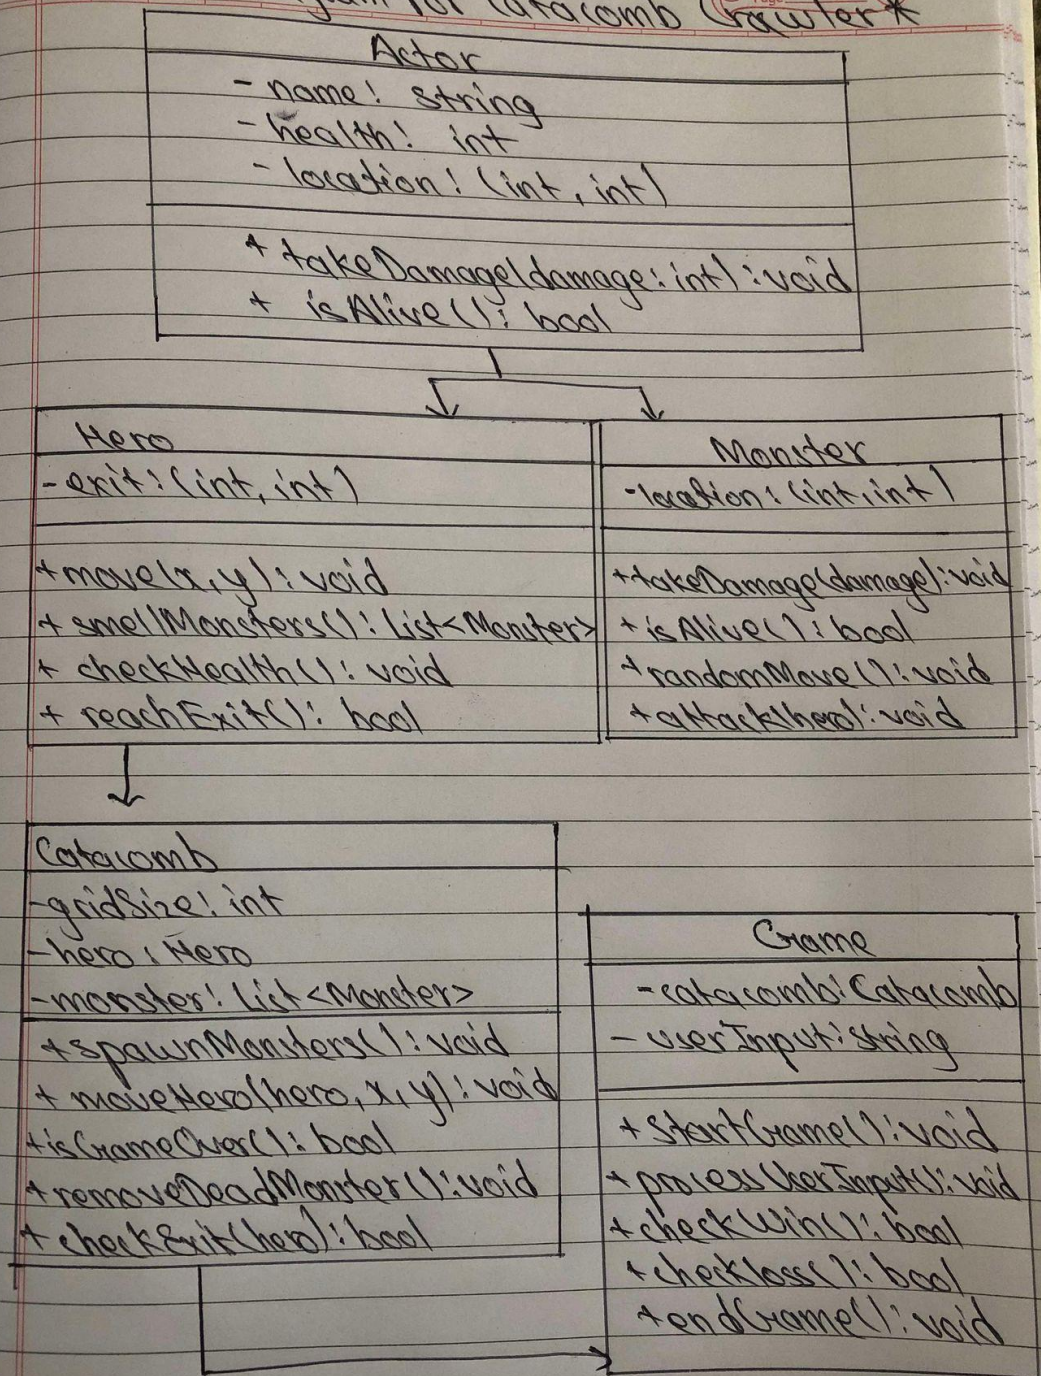 for Catacomb Crawler*
Actor
- name: string
- health: int
- location: (int, int)
+ takeDamage(damage: int): void
+ isAlive(): bool
Hero
- exit: (int, int)
+ move(x, y): void
+ smellMonsters(): List<Monster>
+ checkHealth(): void
+ reachExit(): bool
Monster
- location: (int, int)
+ takeDamage(damage): void
+ isAlive(): bool
+ randomMove(): void
+ attack(hero): void
Catacomb
- gridSize: int
- hero: Hero
- monster: List<Monster>
+ spawnMonsters(): void
+ moveHero(hero, x, y): void
+ isGameOver(): bool
+ removeDeadMonster(): void
+ checkExit(hero): bool
Game
- catacomb: Catacomb
- userInput: String
+ startGame(): void
+ processUserInput(): void
+ checkWin(): bool
+ checkloss(): bool
+ endGame(): void